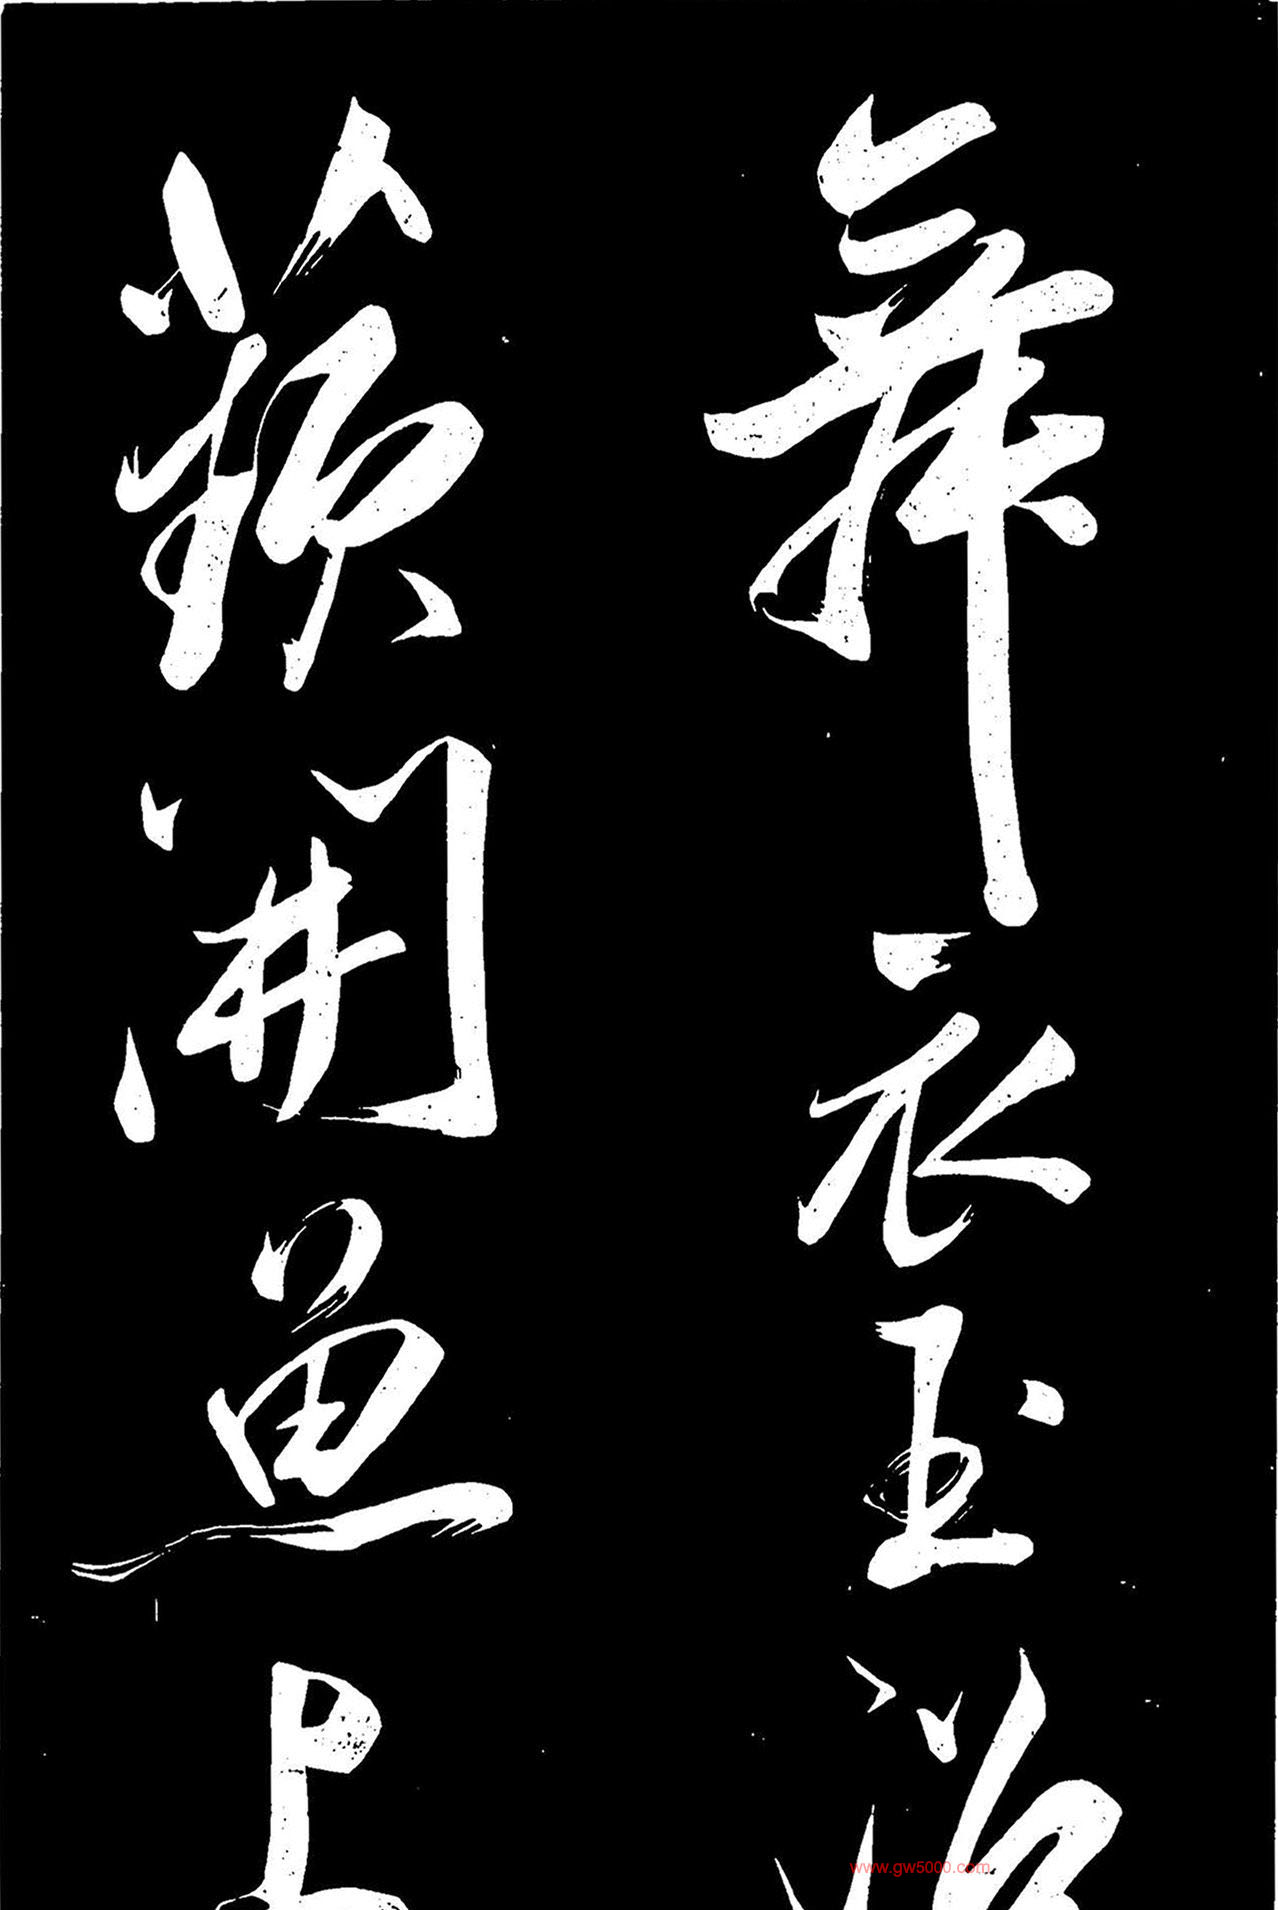 舞衣玉
蘋開魚上
www.gw5000.com